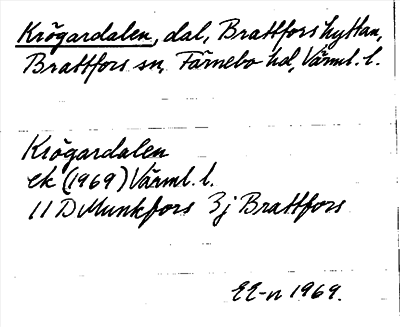 Krögardalen, dal, Brattforshyttan,
Brattfors sn, Färnebo hd, Värml. l.
Krögardalen
ek (1969) Värml. l.
11 D Munkfors 3j Brattfors
EE-n 1969.